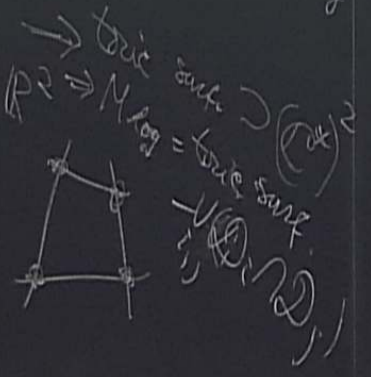 → toric surf. ⊃ (ℂ*)²
ℝ² ⇒ M_Rog = toric surf.
- ∪_{i,j} (D_i ∩ D_j)